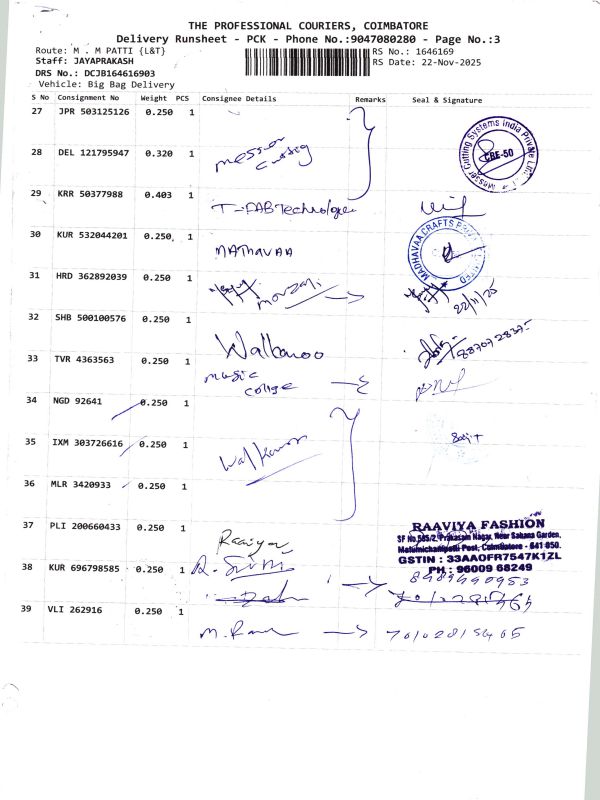 THE PROFESSIONAL COURIERS, COIMBATORE
Delivery Runsheet - PCK - Phone No.:9047080280 - Page No.:3
Route: M . M PATTI {L&T}
RS No.: 1646169
Staff: JAYAPRAKASH
RS Date: 22-Nov-2025
DRS No.: DCJB164616903
Vehicle: Big Bag Delivery
S No Consignment No Weight PCS Consignee Details Remarks Seal & Signature
27 JPR 503125126 0.250 1
28 DEL 121795947 0.320 1
Messer
Cutting Systems India Private Limited
CBE-50
29 KRR 50377988 0.403 1
T-FAB Technologies
30 KUR 532044201 0.250 1
MATHAVAA
MADHAVAA CRAFTS
31 HRD 362892039 0.250 1
22/11/25
32 SHB 500100576 0.250 1
Walkaroo
33 TVR 4363563 0.250 1
music
college
34 NGD 92641 0.250 1
35 IXM 303726616 0.250 1
Walkaroo
36 MLR 3420933 0.250 1
37 PLI 200660433 0.250 1
Raaviya
RAAVIYA FASHION
SF No.585/2, Prakasam Nagar, Near Sahana Garden,
Malumichampatti Post, Coimbatore - 641 050.
GSTIN : 33AAOFR7547K1ZL
PH : 96009 68249
38 KUR 696798585 0.250 1
8489490953
39 VLI 262916 0.250 1
M. Ram